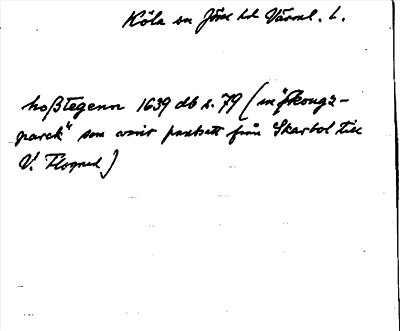 Köla sn Jösse hd Värml. l.
hoßtegenn 1639 db s. 79 (en "skougz-
parck" som varit pantsatt från Skarbol till
V. Flogned)